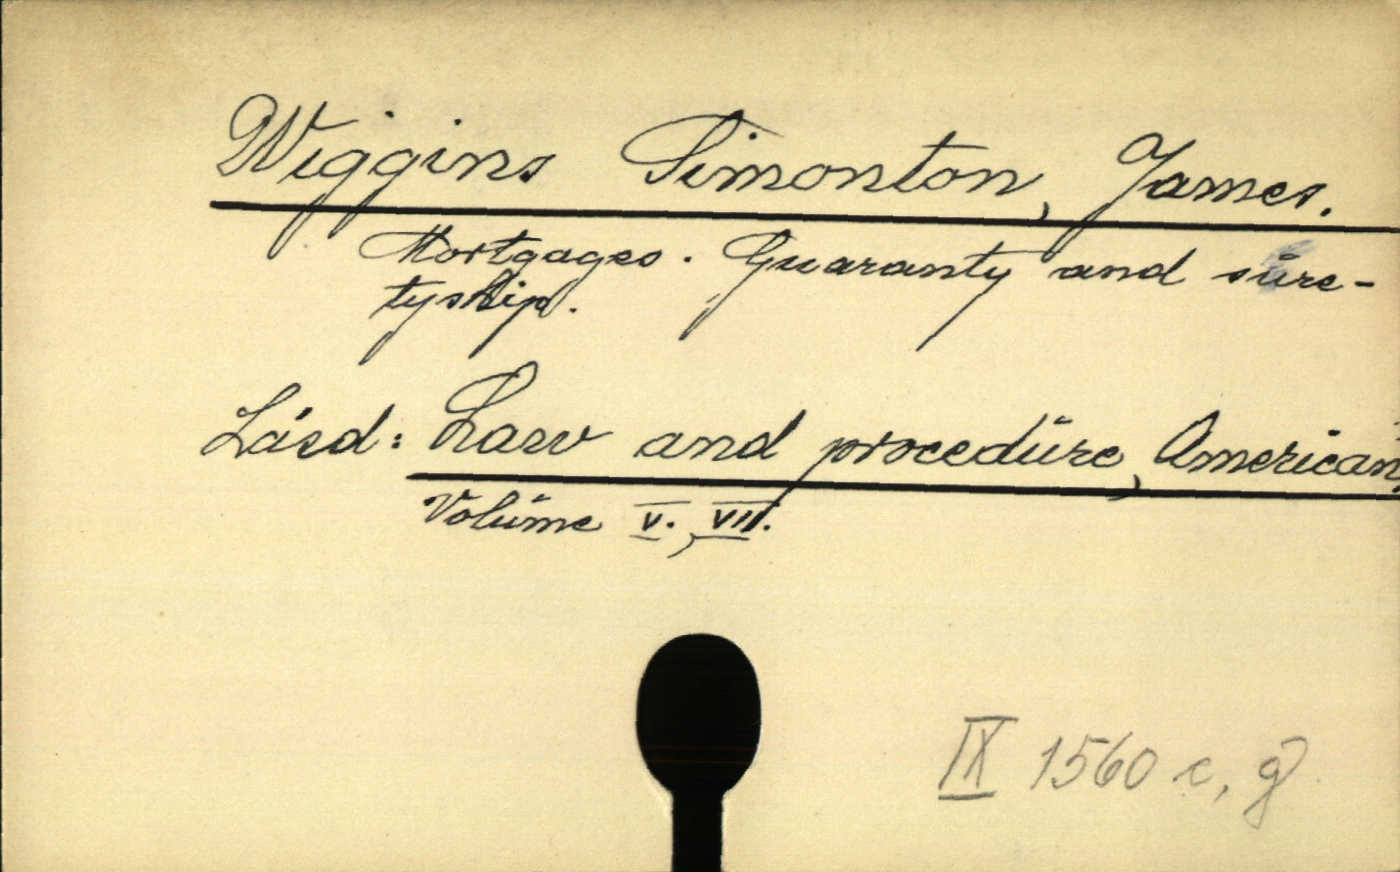 Wiggins Simonton, James.
Mortgages. Guaranty and sure-
tyship.
Lásd: Law and procedure, American,
Volume V., VII.
IX 1560 c, g